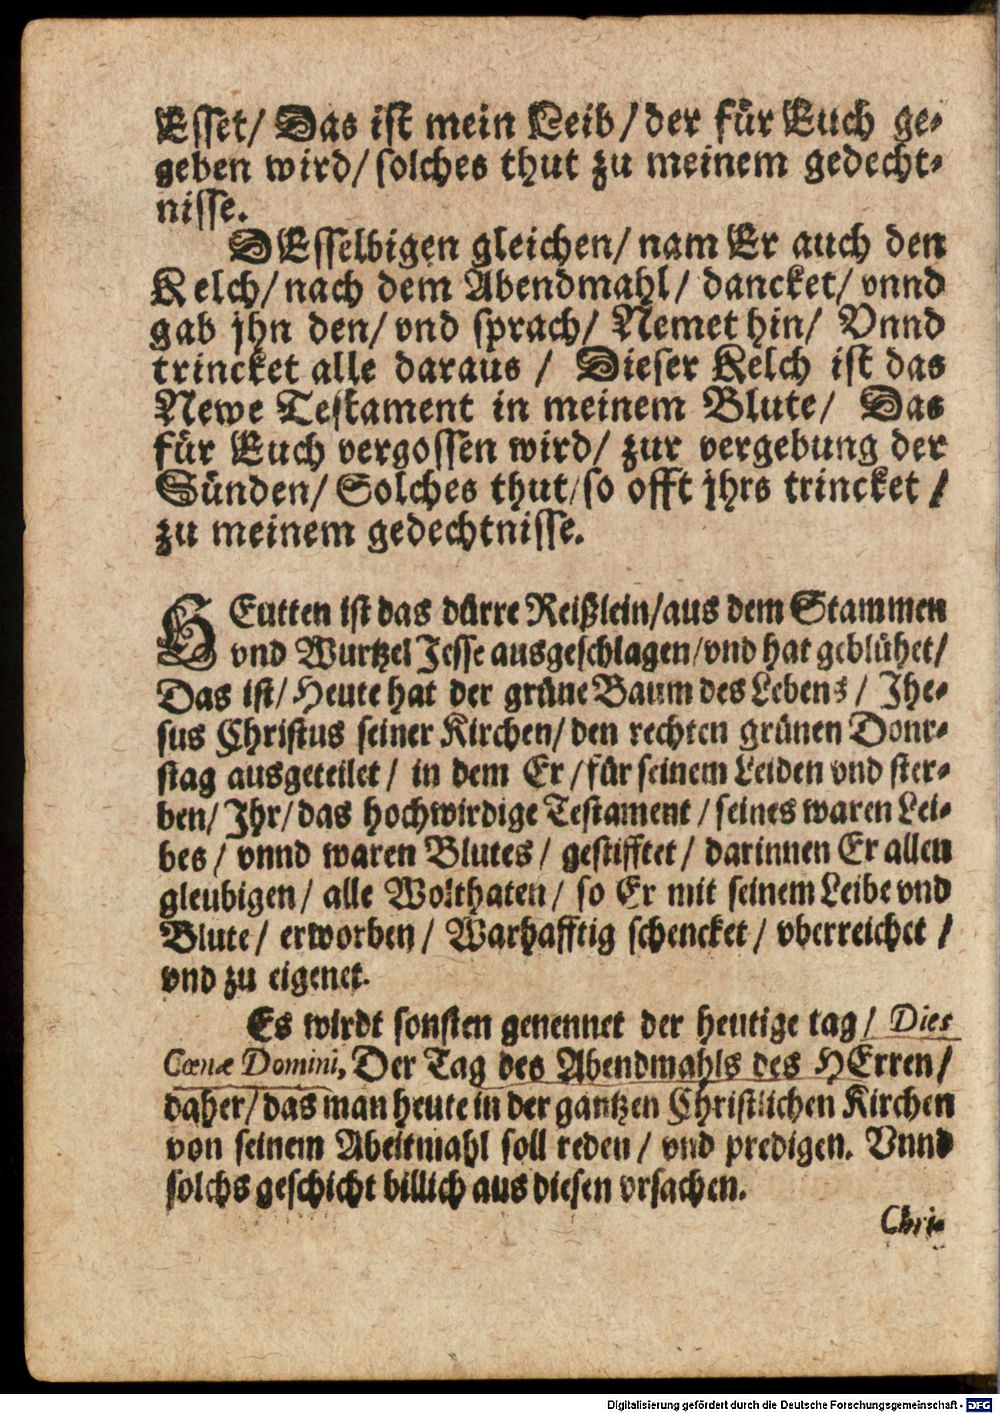 Esset/ Das ist mein Leib/ der für Euch ge-
geben wird/ solches thut zu meinem gedecht-
nisse.
DEsselbigen gleichen/ nam Er auch den
Kelch/ nach dem Abendmahl/ dancket/ vnnd
gab jhn den/ vnd sprach/ Nemet hin/ Vnnd
trincket alle daraus / Dieser Kelch ist das
Newe Testament in meinem Blute/ Das
für Euch vergossen wird/ zur vergebung der
Sünden/ Solches thut/ so offt jhrs trincket /
zu meinem gedechtnisse.
HEutten ist das dürre Reißlein/ aus dem Stammen
vnd Wurtzel Jesse ausgeschlagen/ vnd hat geblühet/
Das ist/ Heute hat der grüne Baum des Lebens / Jhe-
sus Christus seiner Kirchen/ den rechten grünen Donr-
stag ausgeteilet/ in dem Er / für seinem Leiden vnd ster-
ben/ Jhr/ das hochwirdige Testament / seines waren Lei-
bes / vnnd waren Blutes/ gestifftet/ darinnen Er allen
gleubigen/ alle Wolthaten/ so Er mit seinem Leibe vnd
Blute/ erworben/ Warhafftig schencket / vberreichet /
vnd zu eigenet.
Es wirdt sonsten genennet der heutige tag/ Dies
Cœnæ Domini, Der Tag des Abendmahls des HErren/
daher/ das man heute in der gantzen Christlichen Kirchen
von seinem Abentmahl soll reden / vnd predigen. Vnnd
solchs geschicht billich aus diesen vrsachen.
Chri-
Digitalisierung gefördert durch die Deutsche Forschungsgemeinschaft - DFG